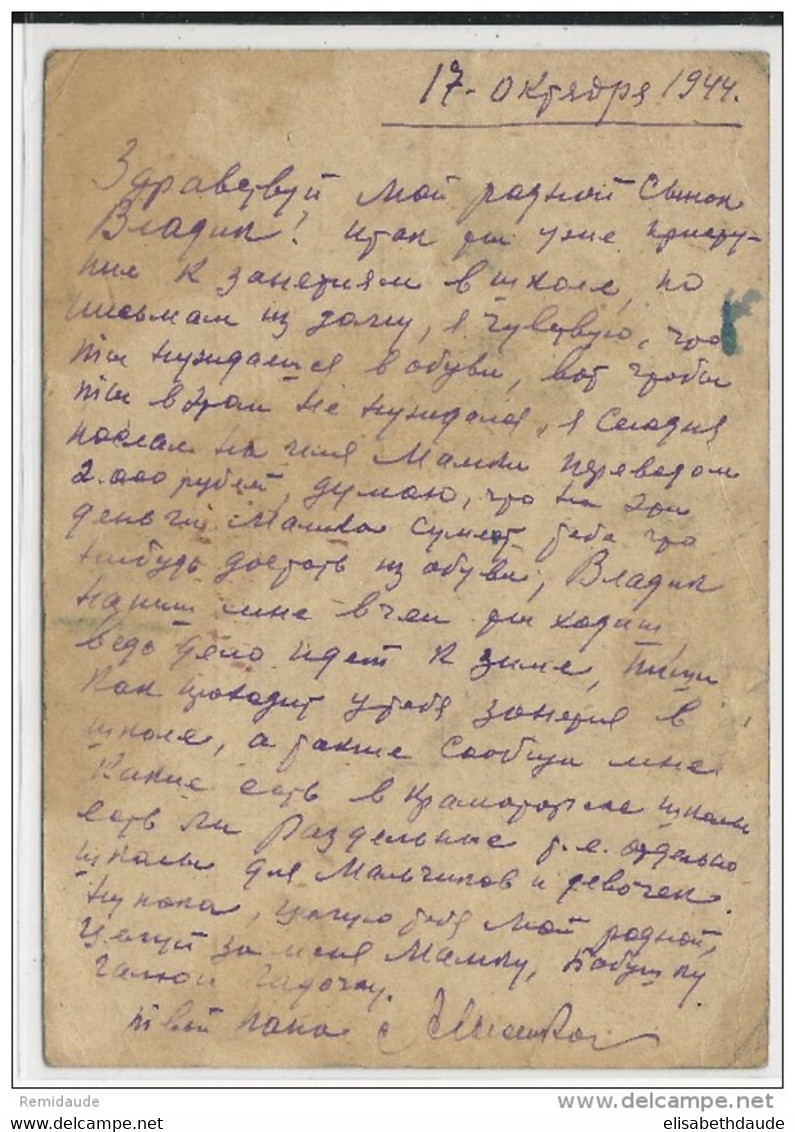 17. октября 1944.
Здравствуй мой родной сынок
Владик! Итак ты уже присту-
пил к занятиям в школе, по
письмам из дому, я чувствую, что
ты нуждаешся в обуви, вот чтобы
ты в этом не нуждался, я сегодня
послал на имя Мамки переводом
2.000 рублей, думаю, что на эти
деньги Мамка сумеет тебе что
нибудь достать из обуви, Владик
напиши мне в чем ты ходиш
ведь дело идет к зиме, пиши
как проходит у тебя занятия в
школе, а также сообщи мне
какие есть в Краматорске школы
есть ли раздельные т.е. отдельно
школы для мальчиков и девочек.
Ну пока, целую тебя мой родной,
целуй за меня Мамку, Бабушку
Галю и Ладочку.
твой папа
Remidaude
www.delcampe.net
elisabethdaude